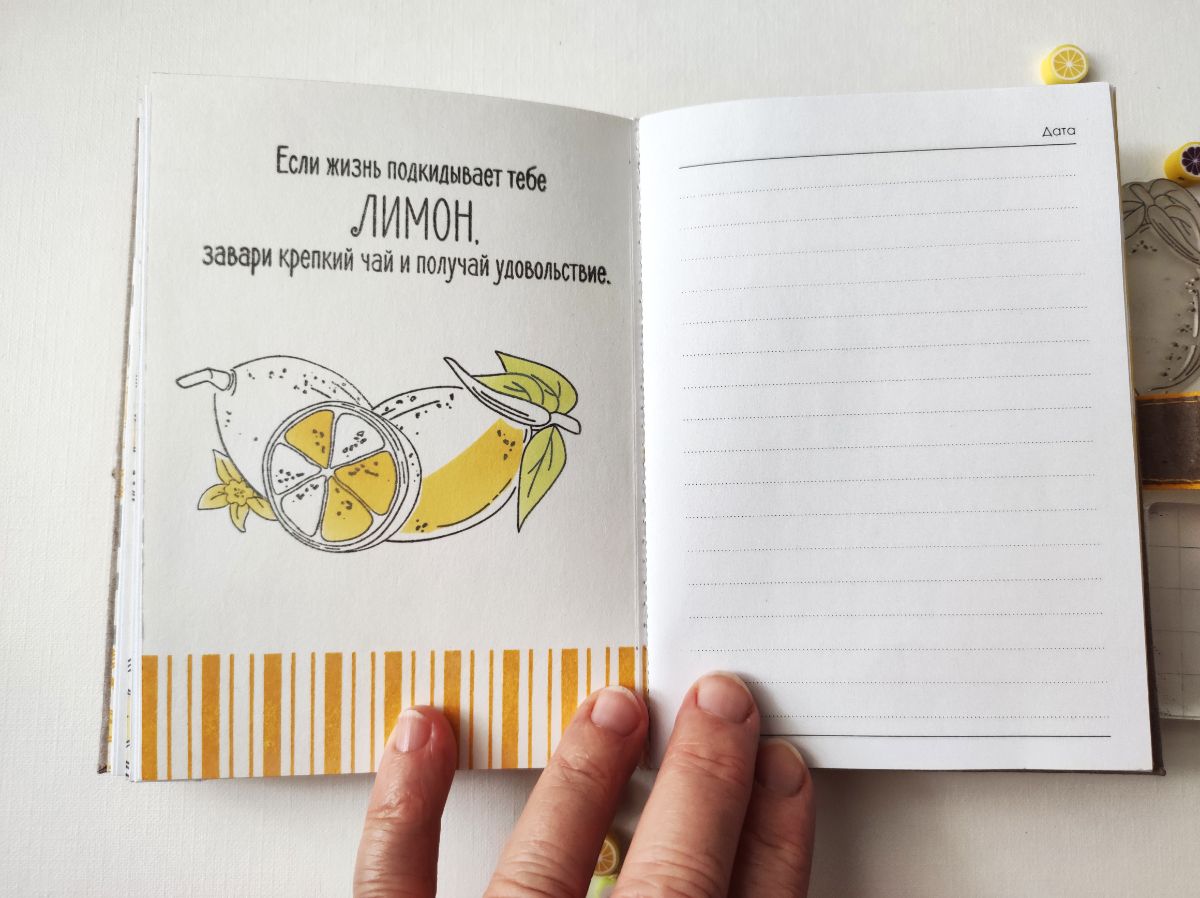 Если жизнь подкидывает тебе
ЛИМОН,
завари крепкий чай и получай удовольствие.
Дата